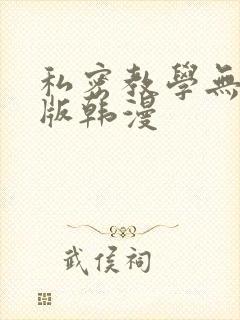 私密教學無
版韩漫
武侯祠